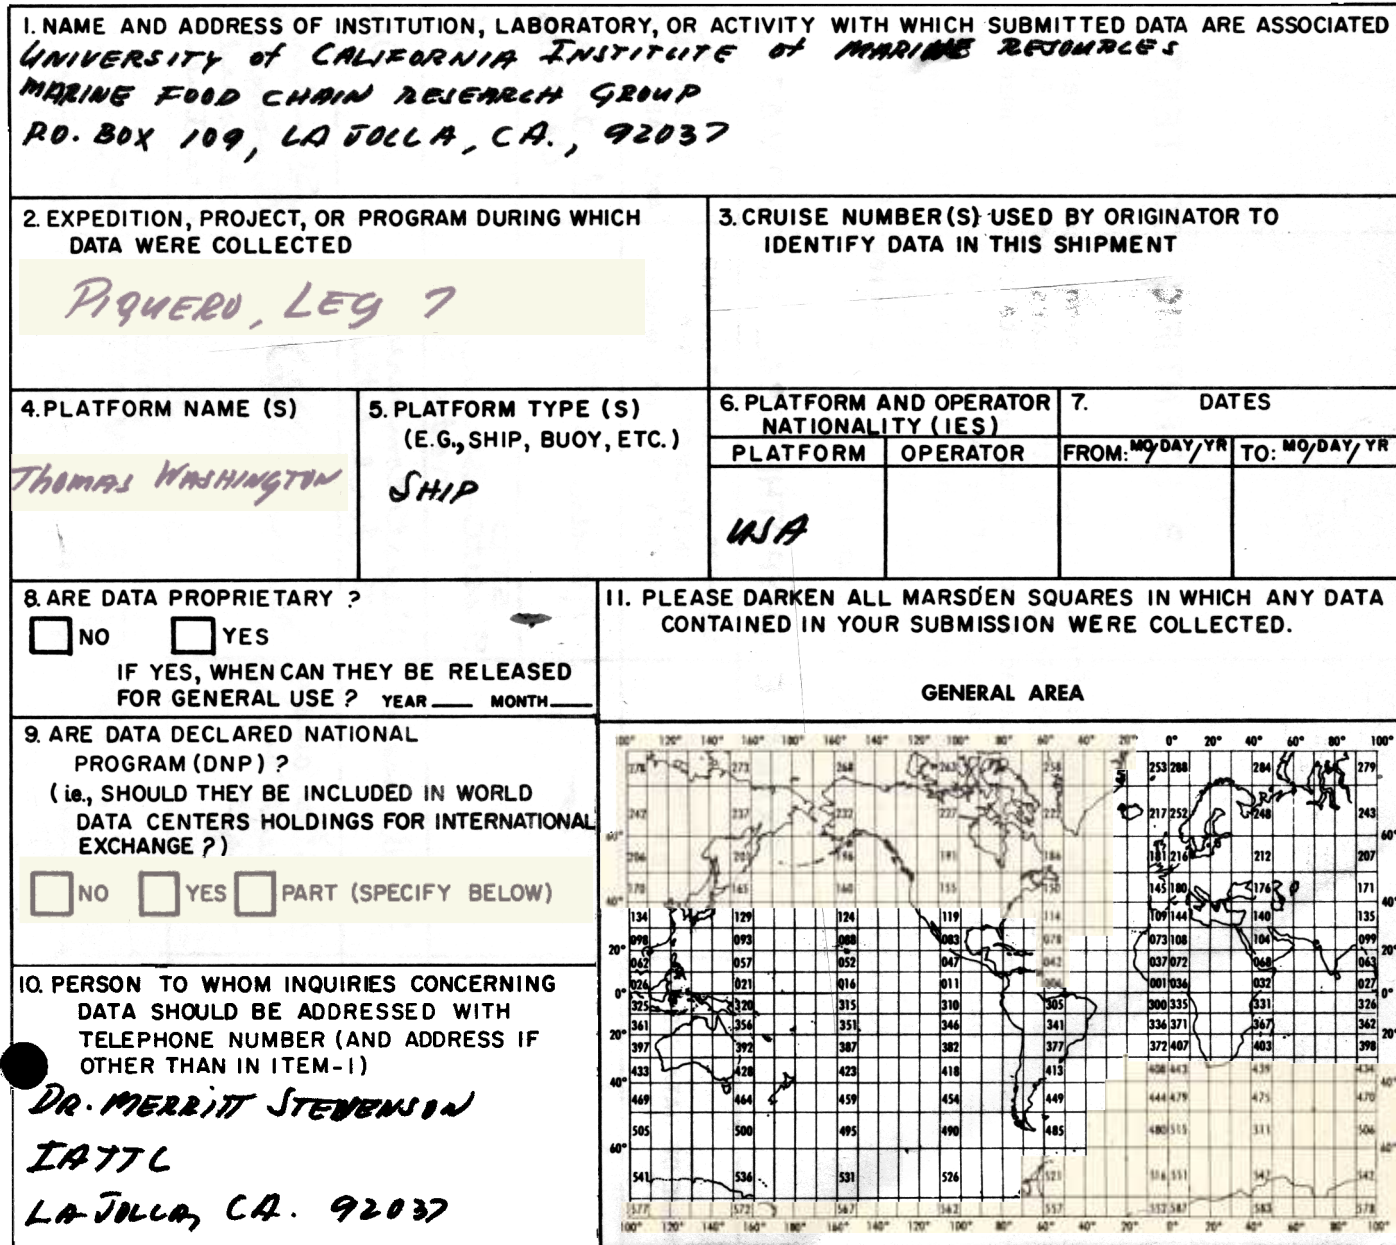 1. NAME AND ADDRESS OF INSTITUTION, LABORATORY, OR ACTIVITY WITH WHICH SUBMITTED DATA ARE ASSOCIATED
UNIVERSITY of CALIFORNIA INSTITUTE of MARINE RESOURCES
MARINE FOOD CHAIN RESEARCH GROUP
P.O. BOX 109, LA JOLLA, CA., 92037
2. EXPEDITION, PROJECT, OR PROGRAM DURING WHICH
DATA WERE COLLECTED
PIQUERO, LEG 7
3. CRUISE NUMBER(S) USED BY ORIGINATOR TO
IDENTIFY DATA IN THIS SHIPMENT
4. PLATFORM NAME (S)
THOMAS WASHINGTON
5. PLATFORM TYPE (S)
(E.G., SHIP, BUOY, ETC.)
SHIP
6. PLATFORM AND OPERATOR
NATIONALITY (IES)
PLATFORM OPERATOR
USA
7. DATES
FROM: MO/DAY/YR TO: MO/DAY/YR
8. ARE DATA PROPRIETARY ?
NO YES
IF YES, WHEN CAN THEY BE RELEASED
FOR GENERAL USE ? YEAR____ MONTH____
9. ARE DATA DECLARED NATIONAL
PROGRAM (DNP) ?
(ie., SHOULD THEY BE INCLUDED IN WORLD
DATA CENTERS HOLDINGS FOR INTERNATIONAL
EXCHANGE ?)
NO YES PART (SPECIFY BELOW)
10. PERSON TO WHOM INQUIRIES CONCERNING
DATA SHOULD BE ADDRESSED WITH
TELEPHONE NUMBER (AND ADDRESS IF
OTHER THAN IN ITEM-1)
DR. MERRITT STEVENSON
IATTC
LA JOLLA, CA. 92037
11. PLEASE DARKEN ALL MARSDEN SQUARES IN WHICH ANY DATA
CONTAINED IN YOUR SUBMISSION WERE COLLECTED.
GENERAL AREA
100° 120° 140° 160° 180° 160° 140° 120° 100° 80° 60° 40° 20° 0° 20° 40° 60° 80° 100°
273 268 263 258 253 288 284 279
242 237 232 227 222 217 252 248 243
60° 60°
206 201 196 191 186 181 216 212 207
170 165 160 155 150 145 180 176 171
40° 40°
134 129 124 119 114 109 144 140 135
098 093 088 083 078 073 108 104 099
20° 20°
062 057 052 047 042 037 072 068 063
026 021 016 011 006 001 036 032 027
0° 0°
325 320 315 310 305 300 335 331 326
361 356 351 346 341 336 371 367 362
20° 20°
397 392 387 382 377 372 407 403 398
433 428 423 418 413 408 443 439 434
40° 40°
469 464 459 454 449 444 479 475 470
505 500 495 490 485 480 515 511 506
60° 60°
541 536 531 526 521 516 551 547 542
577 572 567 562 557 552 587 583 578
100° 120° 140° 160° 180° 160° 140° 120° 100° 80° 60° 40° 20° 0° 20° 40° 60° 80° 100°